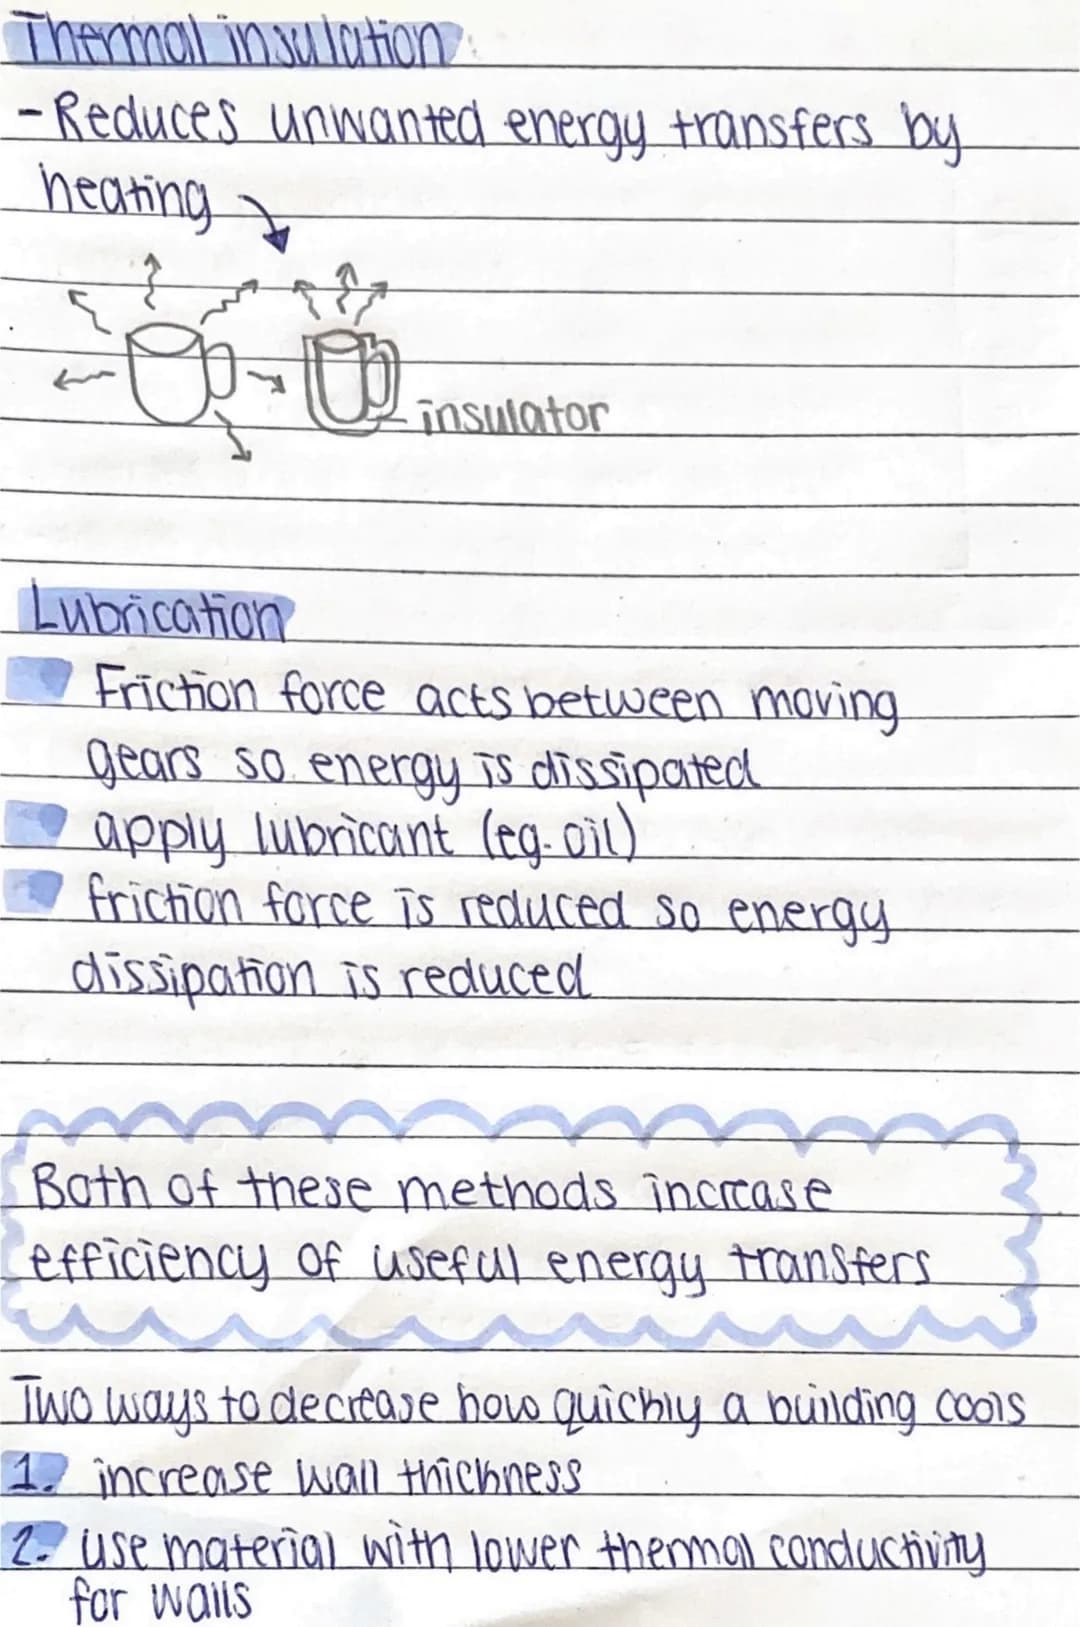 Thermal insulation:
- Reduces unwanted energy transfers by
heating
insulator
Lubrication
Friction force acts between moving
gears so energy is dissipated
apply lubricant (eg. oil)
friction force is reduced so energy
dissipation is reduced
Both of these methods increase
efficiency of useful energy transfers
Two ways to decrease how quickly a building cools
1. increase wall thickness
2. use material with lower thermal conductivity
for walls